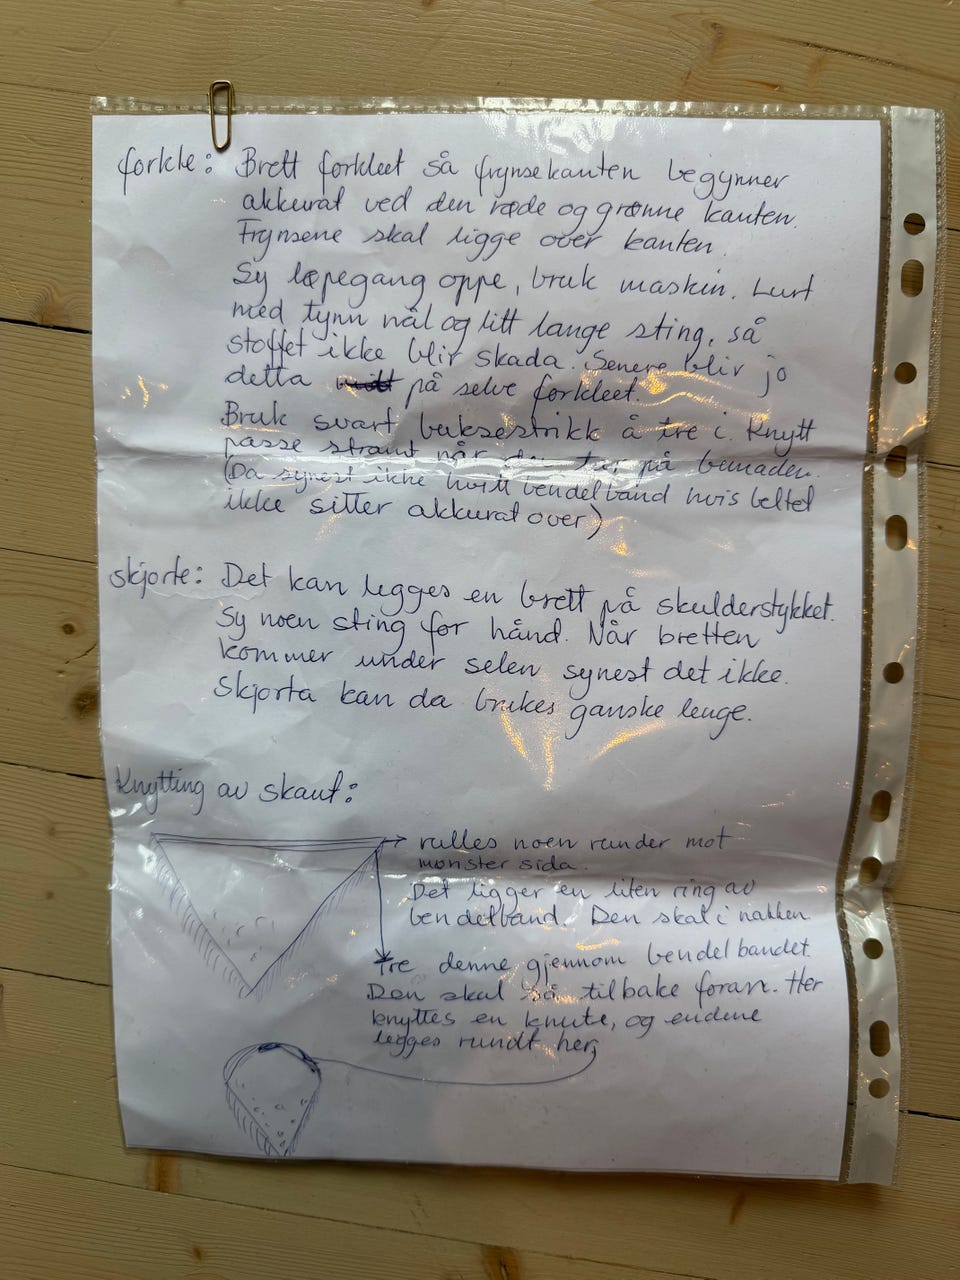 forkle: Brett forkleet så frynsekanten begynner
akkurat ved den røde og grønne kanten.
Frynsene skal ligge over kanten.
Sy løpegang oppe, bruk maskin. Lurt
med tynn nål og litt lange sting, så
stoffet ikke blir skada. Senere blir jo
detta på selve forkleet.
Bruk svart buksestrikk å tre i. Knytt
passe stramt når den tar på bunaden.
(Da synest ikke hvitt bendelbånd hvis beltet
ikke sitter akkurat over)
skjorte: Det kan legges en brett på skulderstykket.
Sy noen sting for hånd. Når bretten
kommer under selen synest det ikke.
Skjorta kan da brukes ganske lenge.
Knytting av skaut:
→ rulles noen runder mot
mønster sida.
Det ligger en liten ring av
bendelbånd. Den skal i nakken.
Tre denne gjennom bendelbandet.
Den skal så tilbake foran. Her
knyttes en knute, og endene
legges rundt her,